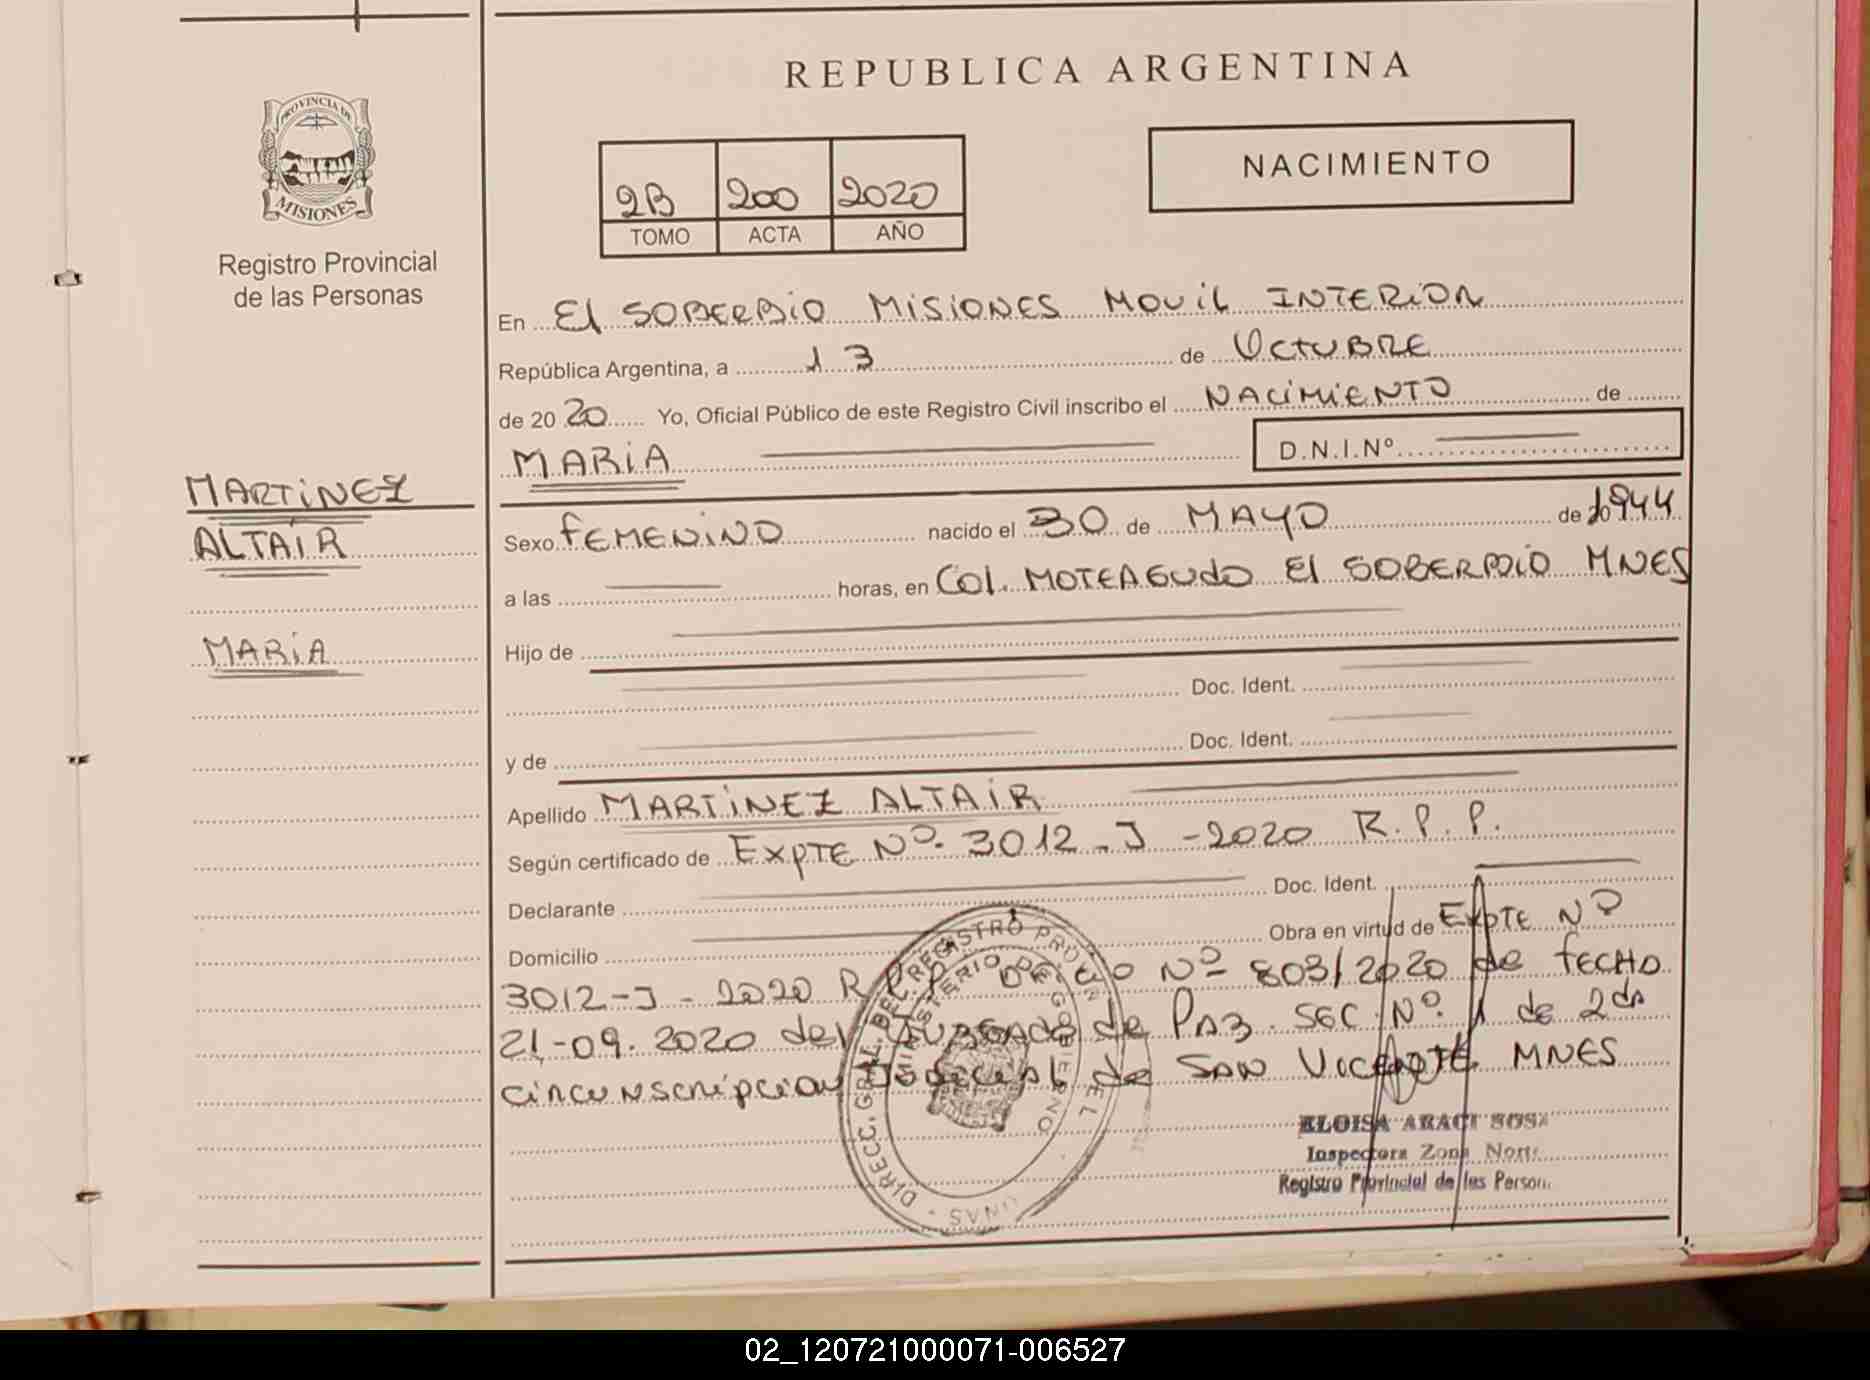 REPUBLICA ARGENTINA
PROVINCIA DE
MISIONES
Registro Provincial
de las Personas
2B 200 2020
TOMO ACTA AÑO
NACIMIENTO
En El SOBERBIO MISIONES MOVIL INTERIOR
República Argentina, a 13 de OCTUBRE
de 20 20 Yo, Oficial Público de este Registro Civil inscribo el NACIMIENTO de
MARIA D.N.I.Nº
MARTINEZ
ALTAIR
MARIA
Sexo FEMENINO nacido el 30 de MAYO de 1944
a las horas, en Col. MOTEAGUDO El SOBERBIO MNES
Hijo de
Doc. Ident.
y de Doc. Ident.
Apellido MARTINEZ ALTAIR
Según certificado de EXPTE Nº. 3012-J-2020 R.P.P.
Declarante Doc. Ident.
Domicilio Obra en virtud de EXPTE Nº
3012-J-2020 R.P.P. Nº 803/2020 de FECHO
21-09.2020 del JUZGADO de PAZ SEC Nº 1 de 2da
circunscripcion Judicial de SAN VICENTE MNES
DIRECC. GRAL. DEL REGISTRO PROV
MINISTERIO DE GOBIERNO
ELOISA ARACI SOSA
Inspectora Zona Norte
Registro Provincial de las Person.
02_120721000071-006527